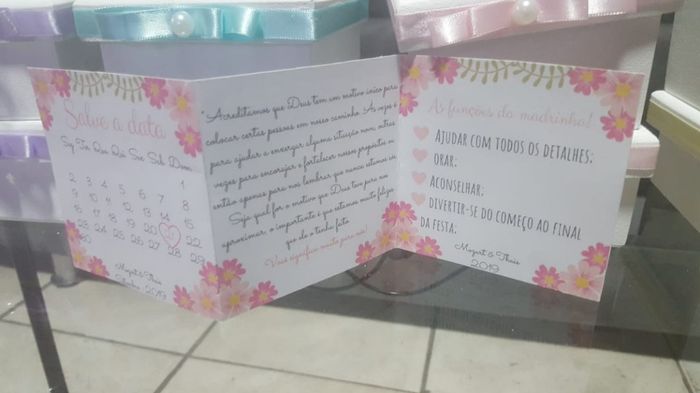 Salve a data
Sex Sab Dom
1
2 3 4 5 6 7 8
9 10 11 12 13 14 15
16 17 18 19 20 22
23 24 25 26 27 28 29
30
2019
"Acreditamos que Deus tem um motivo único para
colocar certas pessoas em nosso caminho. Às vezes é
para ajudar a enxergar alguma situação, outras
vezes para encorajar e fortalecer nossos propósitos ou
então apenas para nos lembrar que nunca estamos sós.
Seja qual for o motivo que Deus teve para nos
aproximar, o importante é que estamos muito felizes
por Ele o tenha feito.
Você significa muito para nós!
As funções da madrinha!
AJUDAR COM TODOS OS DETALHES;
ORAR;
ACONSELHAR;
DIVERTIR-SE DO COMEÇO AO FINAL
DA FESTA;
Mozart & Thais
2019